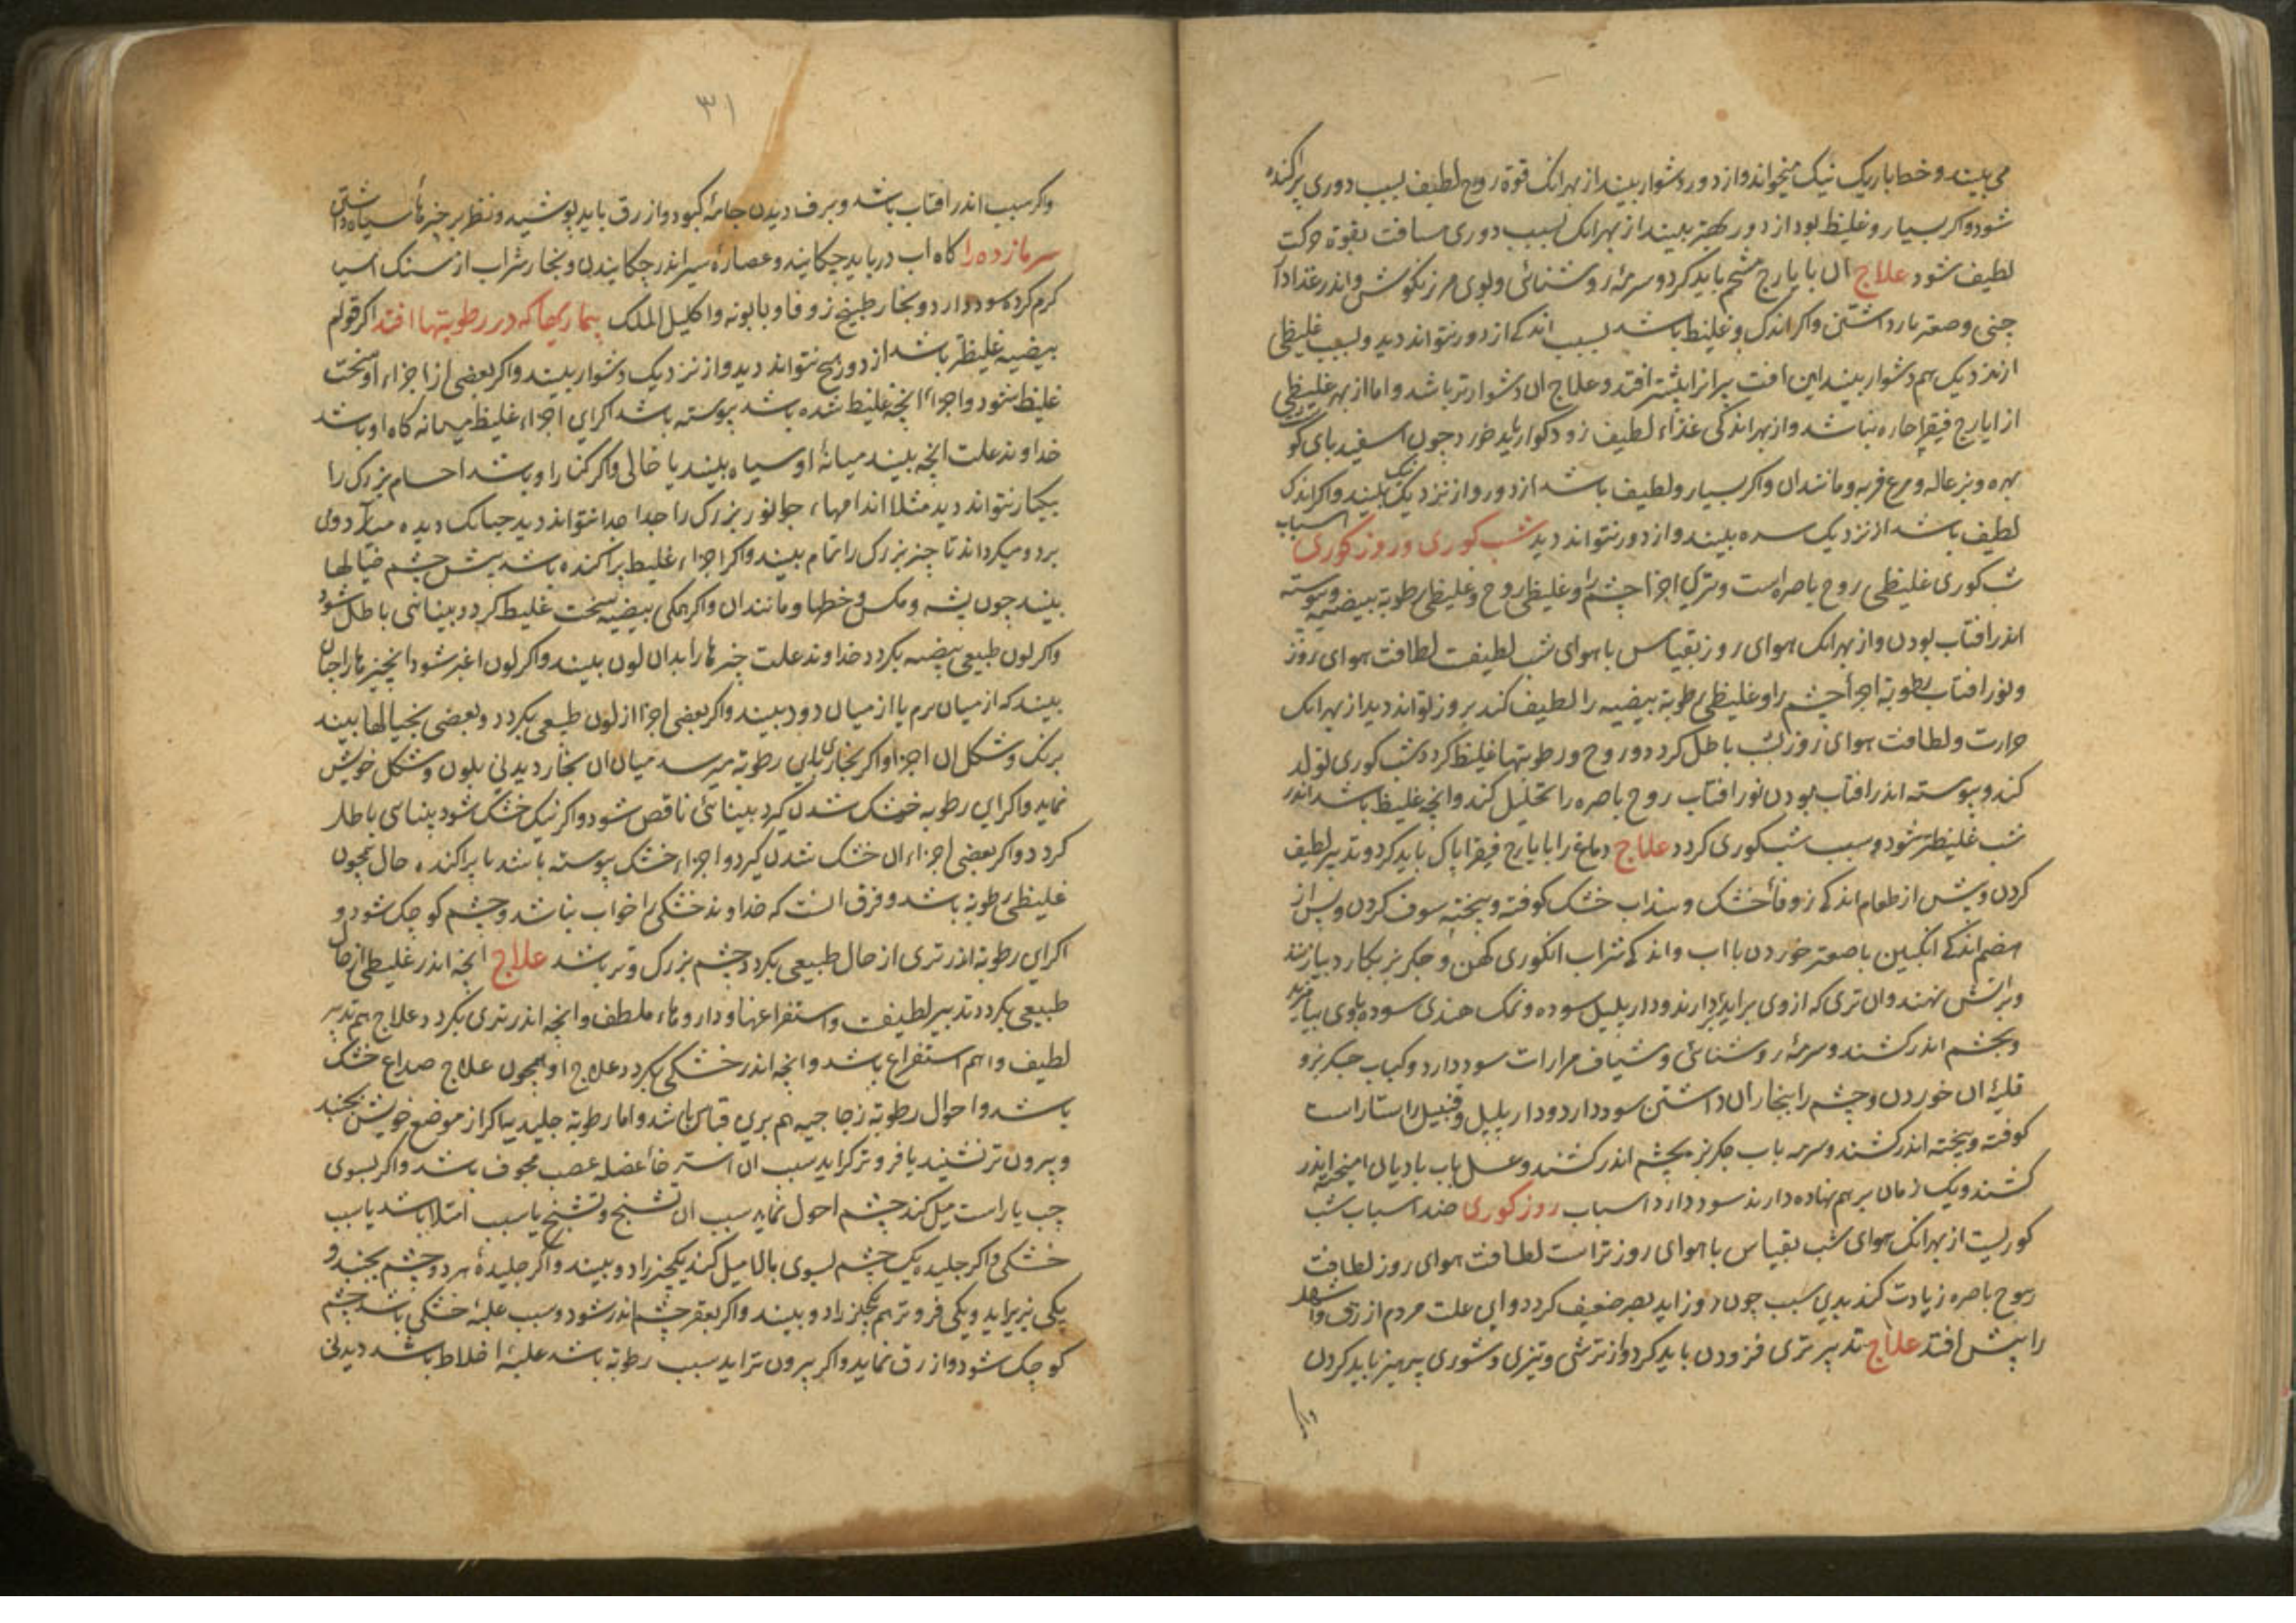 می بیند و خط باریک نیک میخواند و از دور دشوار بیند از بهر انک قوة روح لطیف بسبب دوری پراکنده
شود و اکر بسیار و غلیظ بود از دور بهتر بیند از بهر انک بسبب دوری مسافت بقوة حرکت
لطیف شود علاج ان بایارج شحم باید کرد و سرمهٔ روشنائی و بوی مرزنکوش و اندر غذا دار
چنی و صعتر بار داشتن و اکر اندک و غلیظ باشد بسبب اندکے از دور نتواند دید و بسبب غلیظی
از نزدیک هم دشوار بیند این افت پیرانرا بیشتر افتد و علاج ان دشوارتر باشد و اما از بهر غلیظی
از ایارج فیقرا چاره نباشد و از بهر اندکی غذاء لطیف زود کوار باید خورد چون اسفیدبای کو
بره و بزغاله و مرغ فربه و مانند ان و اکر بسیار و لطیف باشد از دور و از نزدیک نیک بیند و اکر اندک
لطیف باشد از نزدیک سره بیند و از دور نتواند دید شب کوری و روز کوری اسباب
شب کوری غلیظی روح باصره است و تری اجزا چشم را و غلیظی روح و غلیظی رطوبة بیضیه و پیوسته
اندر افتاب بودن و از بهر انک هوای روز بقیاس با هوای شب لطیفست لطافت هوای روز
و نور افتاب رطوبة اجزأ چشم را و غلیظی رطوبة بیضیه را لطیف کند بروز تواند دید از بهر انک
حرارت و لطافت هوای روز بشب باطل کردد و روح و رطوبتها غلیظ کردد شب کوری تولد
کند و پیوسته اندر افتاب بودن نور افتاب روح باصره را تحلیل کند و انچه غلیظ باشد اندر
شب غلیظتر شود و سبب شب کوری کردد علاج دماغ را بایارج فیقرا پاک باید کرد و تدبیر لطیف
کردن و پیش از طعام اندکے زوفأ خشک و سنداب خشک کوفته و بیخته سوف کردن و پس از
هضم اندکے انکبین با صعتر خوردن با اب و اندکے شراب انکوری کهن و جکر بز بکارد بیازنند
و بر اتش نهند و ان تری که از وی براید بردارند و دارپلپل سوده و نمک هندی سوده باوی بیامیزند
و بچشم اندر کشند و سرمهٔ روشنائی و شیاف مرارات سود دارد و کباب جکر بز و
قلیهٔ ان خوردن و چشم را ببخار ان داشتن سود دارد و دارپلپل و قنبیل راستا راست
کوفته و بیخته اندر کشند و سرمه باب جکر بز بچشم اندر کشند و عسل باب بادیان امیخته اندر
کشند و یک زمان بر هم نهاده دارند سود دارد اسباب روز کوری ضد اسباب شب
کوریست از بهر انک هوای شب بقیاس با هوای روز تر است لطافت هوای روز لطافت
روح باصره زیادت کند بدین سبب چون روز اید بصر ضعیف کردد و این علت مردم ازرق و اشهل
را بیش افتد علاج تدبیر تری فزودن باید کرد و از ترشی و تیزی و شوری پرهیز باید کردن
واکر
۳۱
واکر سبب اندر افتاب باشد و برف دیدن جامهٔ کبود و ازرق باید پوشید و نظر بر چیزهأ سیاه داشتن
سرمازده را کاه اب در باید چکانید و عصارهٔ سیر اندر چکانیدن و بخار شراب از سنک اسیا
کرم کرده سود دارد و بخار طبیخ زوفا و بابونه و اکلیل الملک بیماریها که در رطوبتها افتد اکر قوام
بیضیه غلیظتر باشد از دور هیچ نتواند دید و از نزدیک دشوار بیند و اکر بعضی از اجزاء او سخت
غلیظ شود و اجزاء انچه غلیظ شده باشد پیوسته باشد اکر این اجزاء غلیظ بمیانه کاه او باشد
خداوند علت انچه بیند میانهٔ او سیاه بیند یا خالی و اکر کنار او باشد اجسام بزرک را
بیکبار نتواند دید مثلا اندامهاء جانور بزرک را جدا جدا نتواند دید جنانک دیده میرآرد ولی
بر دو میکرداند تا چیز بزرک را تمام بیند و اکر اجزاء غلیظ پراکنده باشد پیش چشم خیالها
بیند چون پشه و مکس و خطها و مانند ان و اکر همکی بیضیه سخت غلیظ کردد بینائی باطل شود
واکر لون طبیعی بیضیه بکردد خداوند علت چیزها را بدان لون بیند و اکر لون اغبر شود انچیزها را چنان
بیند که از میان برم یا از میان دود بیند و اکر بعضی اجزا از لون طبیعی بکردد و بعضی نی خیالها بیند
برنک و شکل ان اجزا و اکر بخاری باین رطوبة میرسد میان ان بخار دیدنی بلون و شکل خویش
نماید و اکر این رطوبه خشک شدن کیرد بینائی ناقص شود و اکر نیک خشک شود بینائی باطل
کردد و اکر بعضی اجزاء ان خشک شدن کیرد و اجزاء خشک پیوسته باشد یا پراکنده حال همچون
غلیظی رطوبة باشد و فرق انست که خداوند خشکی را خواب نباشد و چشم کوچک شود و
اکر این رطوبة اندر تری از حال طبیعی بکردد چشم بزرک و تر باشد علاج انچه اندر غلیظی از حال
طبیعی بکردد تدبیر لطیفست و استفراغها و داروهاء ملطف و انچه اندر تری بکردد علاج هم تدبیر
لطیف و اهم استفراغ باشد و انچه اندر خشکی بکردد علاج او همچون علاج صداع خشک
باشد و احوال رطوبة زجاجیه هم برین قیاس باشد و اما رطوبة جلیدیه اکر از موضع خویش بجنبد
و بیرون تر نشیند یا فروتر کراید سبب ان استرخأ عضله عصب مجوف باشد و اکر بسوی
چپ یا راست میل کند چشم احول نماید سبب ان تشنج و تشنج یا سبب امتلا باشد یا سبب
خشکی و اکر جلیده یک چشم بسوی بالا میل کند یکچیز را دو بیند و اکر جلیدهٔ هر دو چشم بجنبد و
یکی بزیر اید و یکی فروتر هم یکچیز را دو بیند و اکر بقعر چشم اندر شود و سبب غلبهٔ خشکی باشد چشم
کوچک شود و ازرق نماید و اکر بیرون تر اید سبب رطوبة باشد غلبهٔ اخلاط باشد دیدنی